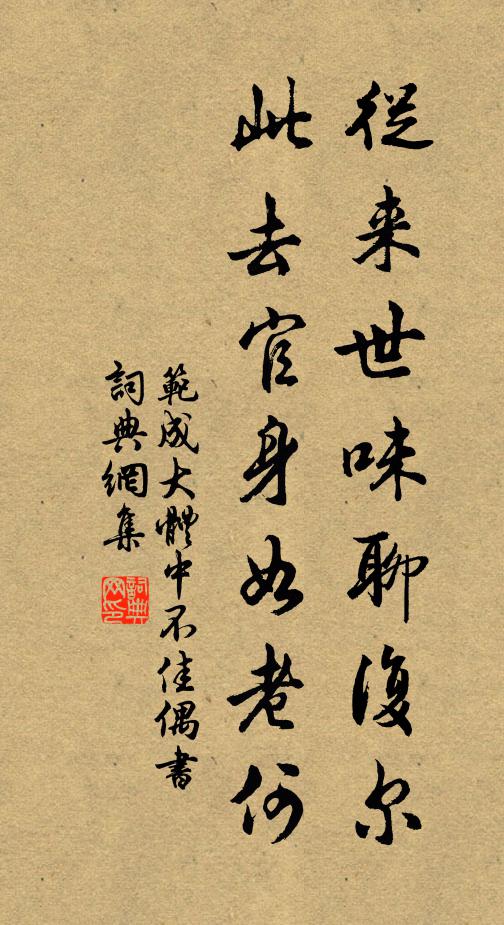 從来世味聊復尔
此去官身如老何
範成大體中不佳偶書
詞典網集
詞典網印